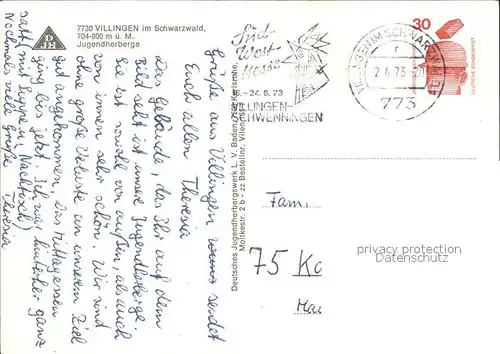 7730 VILLINGEN im Schwarzwald,
704-900 m ü. M.
Jugendherberge
DJH
Süd-
West-
Messe
16.-24.6.73
VILLINGEN-
SCHWENNINGEN
VILLINGEN IM SCHWARZWALD
2.4.73
773
30
DEUTSCHE BUNDESPOST
Grüße aus Villingen sendet
Euch allen Theresia
Das Gebäude, das Ihr auf dem
Bild seht ist unsere Jugendherberge.
Sie ist sowohl von außen, als auch
von innen sehr schön. Wir sind
ohne große Verluste an unserem Ziel
gut angekommen. Das Mittagessen
ging bis jetzt. Ich war hinterher ganz
satt (mit Suppe u. Nachtisch)
Nochmals viele Grüße Theresia
Deutsches Jugendherbergswerk L. V. Baden, Karlsruhe,
Moltkestr. 2 b - zu Bestellnr. Villingen
Fam.
75 Ka
privacy protection
watermark